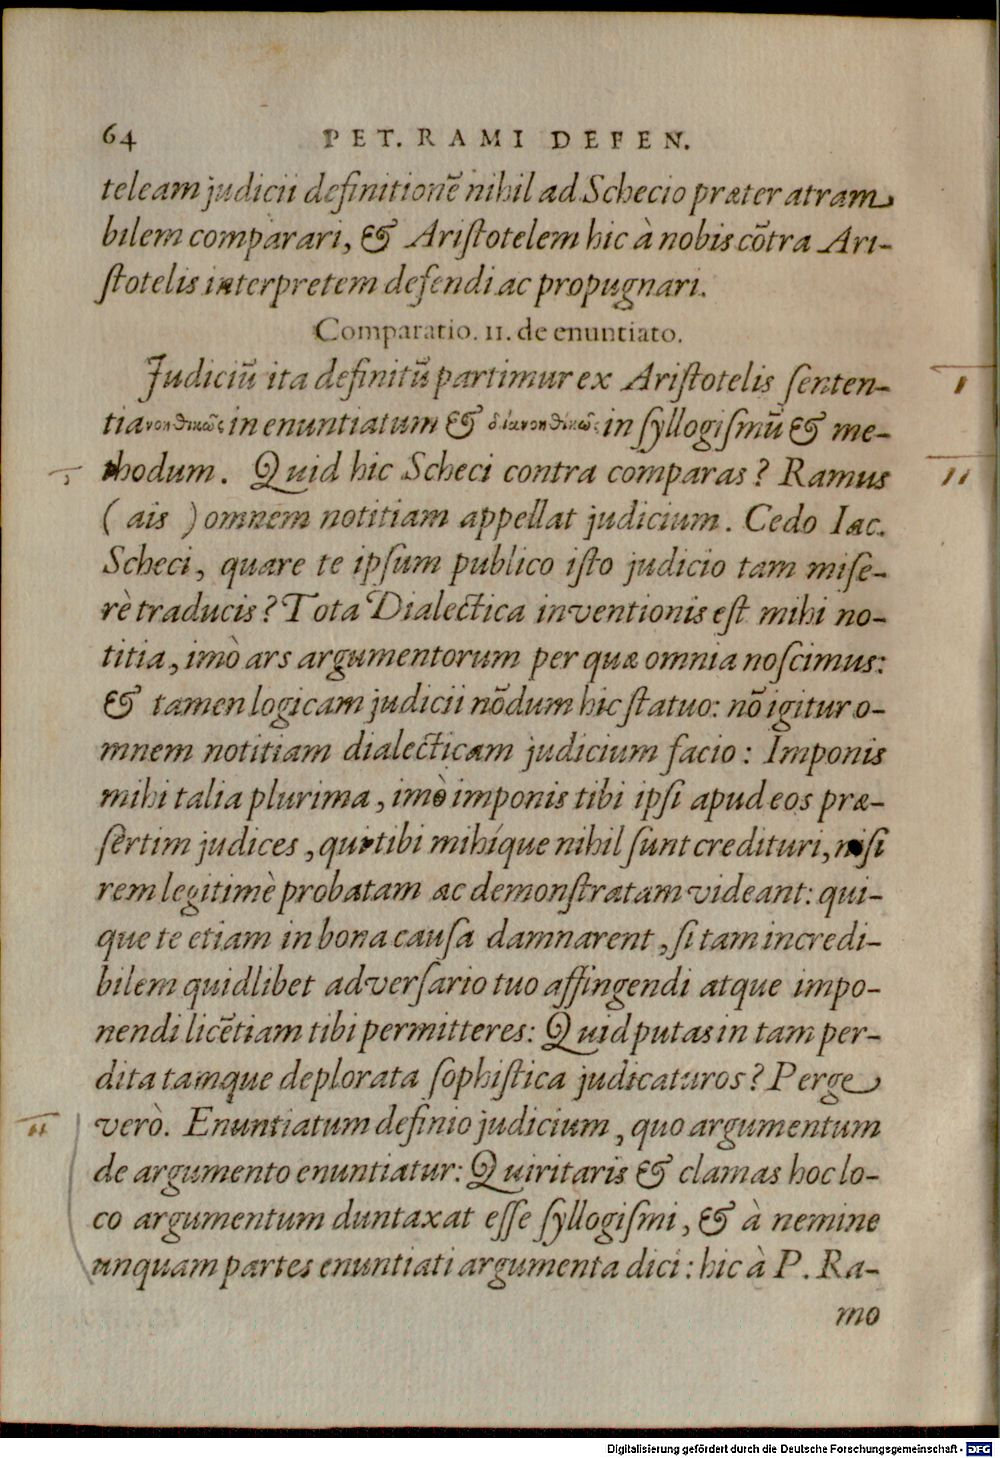 64 PET. RAMI DEFEN.
teleam judicii definitionē nihil ad Schecio præter atram
bilem comparari, & Ariſtotelem hic à nobis cōtra Ari-
ſtotelis interpretem defendi ac propugnari.
Comparatio. II. de enuntiato.
Judiciū ita definitū partimur ex Ariſtotelis ſenten-
tia νοηθικῶς in enuntiatum & διανοηθικῶς in ſyllogiſmū & me-
thodum. Quid hic Scheci contra comparas? Ramus
( ais ) omnem notitiam appellat judicium. Cedo Iac.
Scheci, quare te ipſum publico iſto judicio tam miſe-
rè traducis? Tota Dialectica inventionis eſt mihi no-
titia, imò ars argumentorum per quæ omnia noſcimus:
& tamen logicam judicii nōdum hic ſtatuo: nō igitur o-
mnem notitiam dialecticam judicium facio: Imponis
mihi talia plurima, imò imponis tibi ipſi apud eos præ-
ſertim judices, qui tibi mihíque nihil ſunt credituri, niſi
rem legitimè probatam ac demonſtratam videant: qui-
que te etiam in bona cauſa damnarent, ſi tam incredi-
bilem quidlibet adverſario tuo affingendi atque impo-
nendi licētiam tibi permitteres: Quid putas in tam per-
dita tamque deplorata ſophiſtica judicaturos? Perge
verò. Enuntiatum definio judicium, quo argumentum
de argumento enuntiatur: Quiritaris & clamas hoc lo-
co argumentum duntaxat eſſe ſyllogiſmi, & à nemine
unquam partes enuntiati argumenta dici: hic à P. Ra-
mo
Digitalisierung gefördert durch die Deutsche Forschungsgemeinschaft - DFG